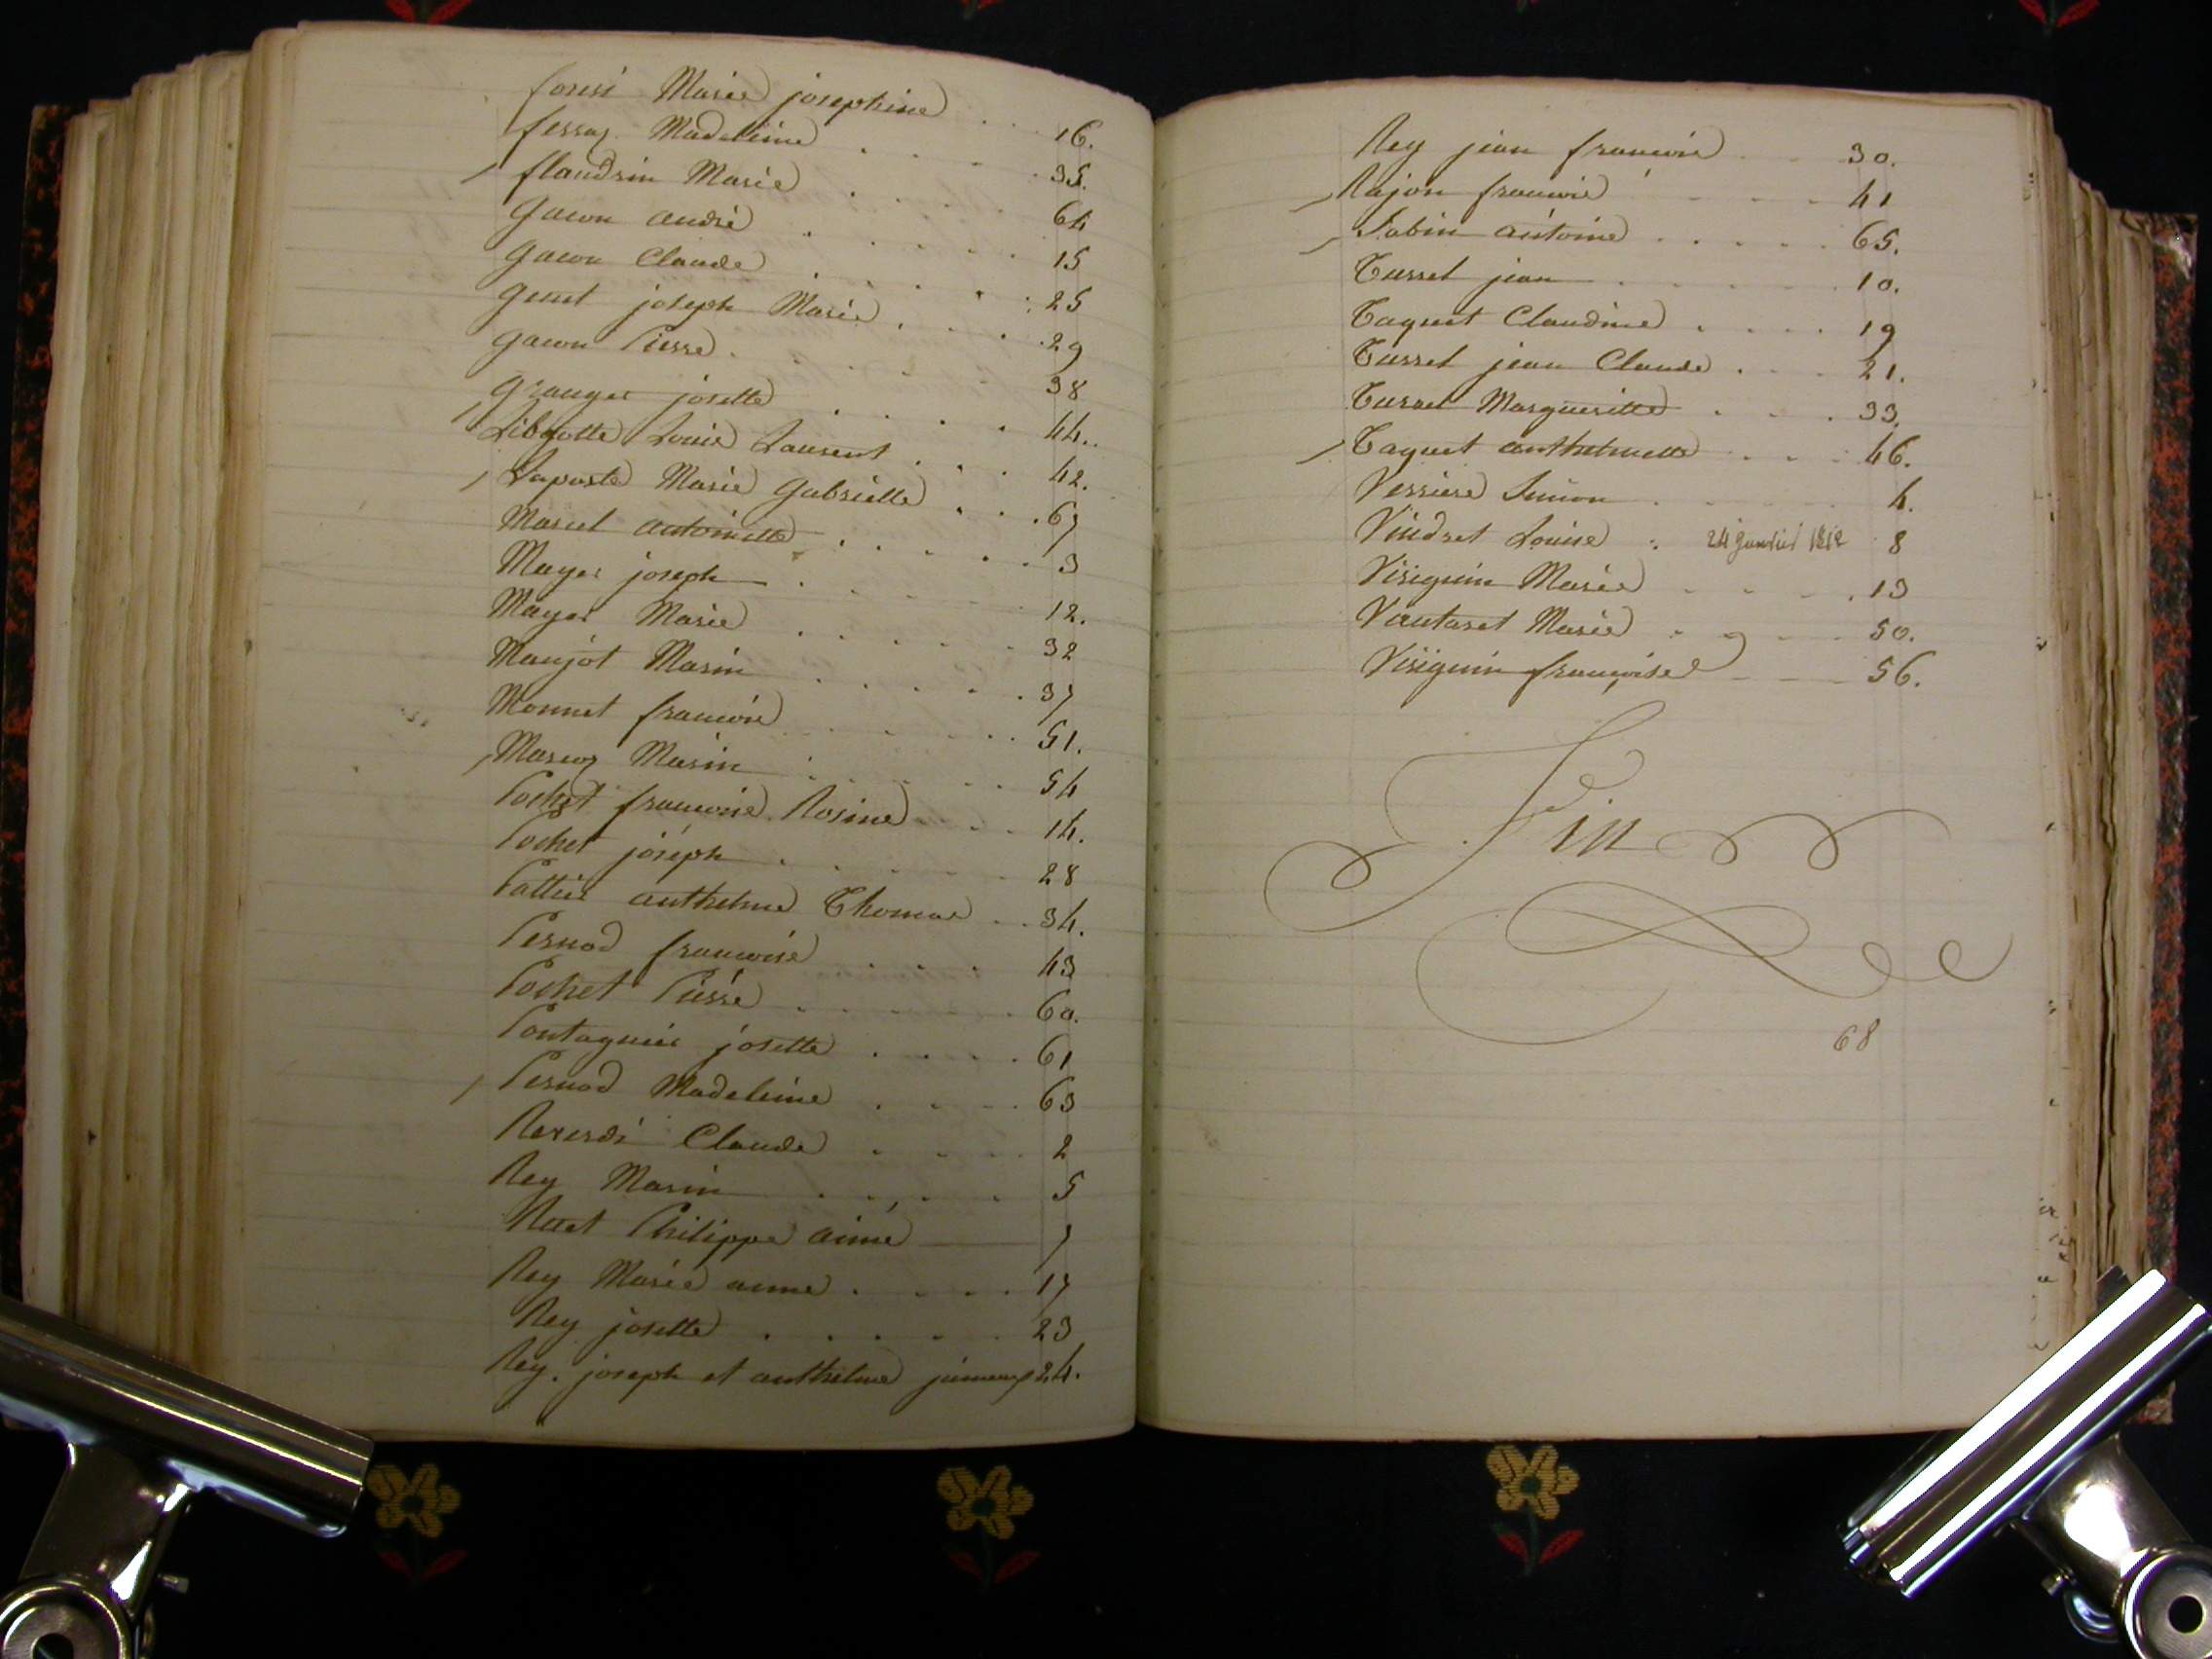 foresi Marie josephine . . . 16.
fessaz Madeleine . . . . 35.
/ flandrin Marie . . . . 64
Gacon andré . . . . . 15
Gacon Claude . . . . . 25
Genet joseph Marie . . . . 29
Gacon Pierre . . . . 38
Granger josette . . . . 44..
/ Louis Laurent . . . 42.
/ Laporte Marie Gabrielle . . . 67
Marcel antoinette . . . . . 3
Mayer joseph . . . . . 12.
Mayer Marie . . . . . 32
Manjot Marin . . . . . 37
Monnet francois . . . . 51.
/ Marcoz Marin . . . . . 54
Pochet francoise Rosine . . . 14.
Pochet joseph . . . . . 28
Pattier anthelme Thomas . . 34.
Pernod francoise . . . . 43
Pochet Pierre . . . . . 60.
Pontagnier josette . . . . 61
/ Pernod Madeleine . . . . 63
Reverdi Claude . . . . 2
Rey Marin . . . . . 5
Ruet Philippe aimé 7
Rey Marie anne . . . . 17
Rey josette . . . . . 23
Rey. joseph et anthelme jumeaux 24.
Rey jean francois . . 30.
/ Rajon francois . . . . 41
/ Sabin antoine . . . . . 65.
Tussel jean . . . . . 10.
Taguet Claudine . . . . 19
Tussel jean Claude . . . 21.
Margueritte . . . 33.
/ Taguet anthelmette . . . 46.
Verriere Simon . . . . 4.
Vindret Louise . 24 janvier 1812 8
Visiguin Marie . . . . 13
Vautaret Marie . . . . 50.
Visiguin françoise . . . 56.
Fin
68